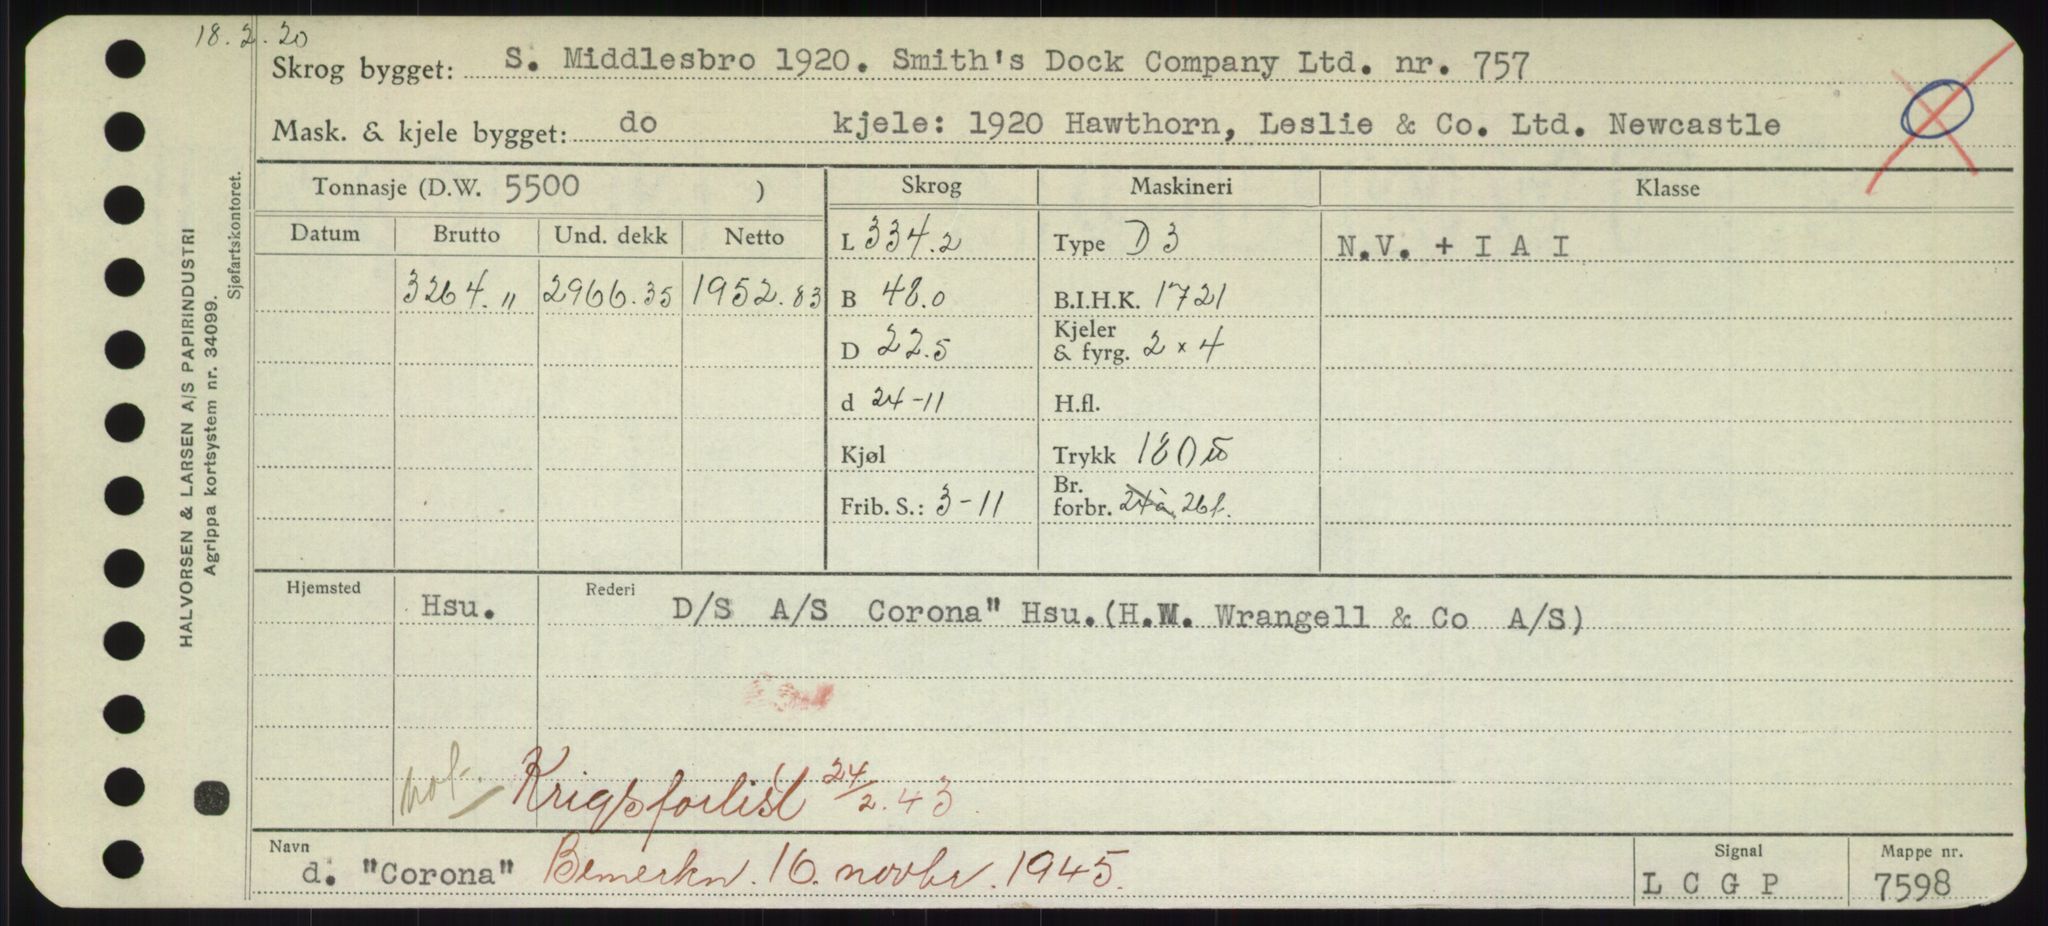 18.2.20
Skrog bygget: S. Middlesbro 1920. Smith's Dock Company Ltd. nr. 757
Mask. & kjele bygget: do kjele: 1920 Hawthorn, Leslie & Co. Ltd. Newcastle
Tonnasje (D.W. 5500 ) Skrog Maskineri Klasse
Datum Brutto Und. dekk Netto L 334.2 Type D 3 N.V. + I A I
3264. " 2966.35 1952.83 B 48.0 B.I.H.K. 1721
D 22.5 Kjeler & fyrg. 2 × 4
d 24-11 H.fl.
Kjøl Trykk 180
Frib. S.: 3-11 Br. forbr. 24 à 26 f.
Hjemsted Hsu. Rederi D/S A/S Corona" Hsu.(H.M. Wrangell & Co A/S)
Krigsforlist 24/2.43
Navn d. "Corona" Bemerkn. 16. novbr. 1945. Signal L C G P Mappe nr. 7598
HALVORSEN & LARSEN A/S PAPIRINDUSTRI
Agrippa kortsystem nr. 34099.
Sjøfartskontoret.